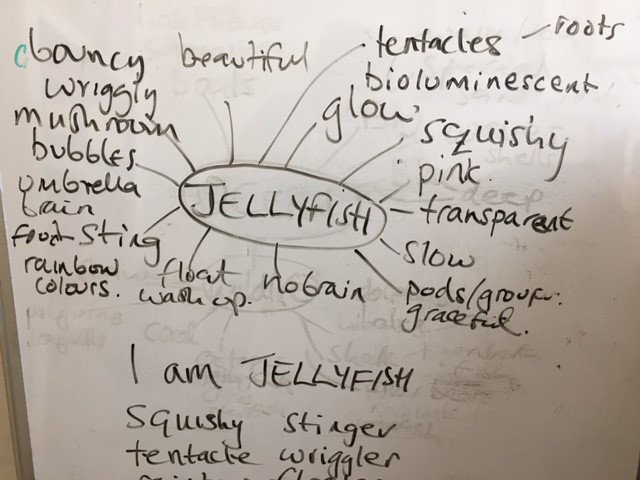 bouncy beautiful tentacles – roots
wriggly bioluminescent
mushroom glow
bubbles squishy
umbrella pink
brain JELLYFISH transparent
food Sting slow
rainbow float no brain pods/group
colours. wash up. graceful.
I am JELLYFISH
Squishy stinger
tentacle wriggler